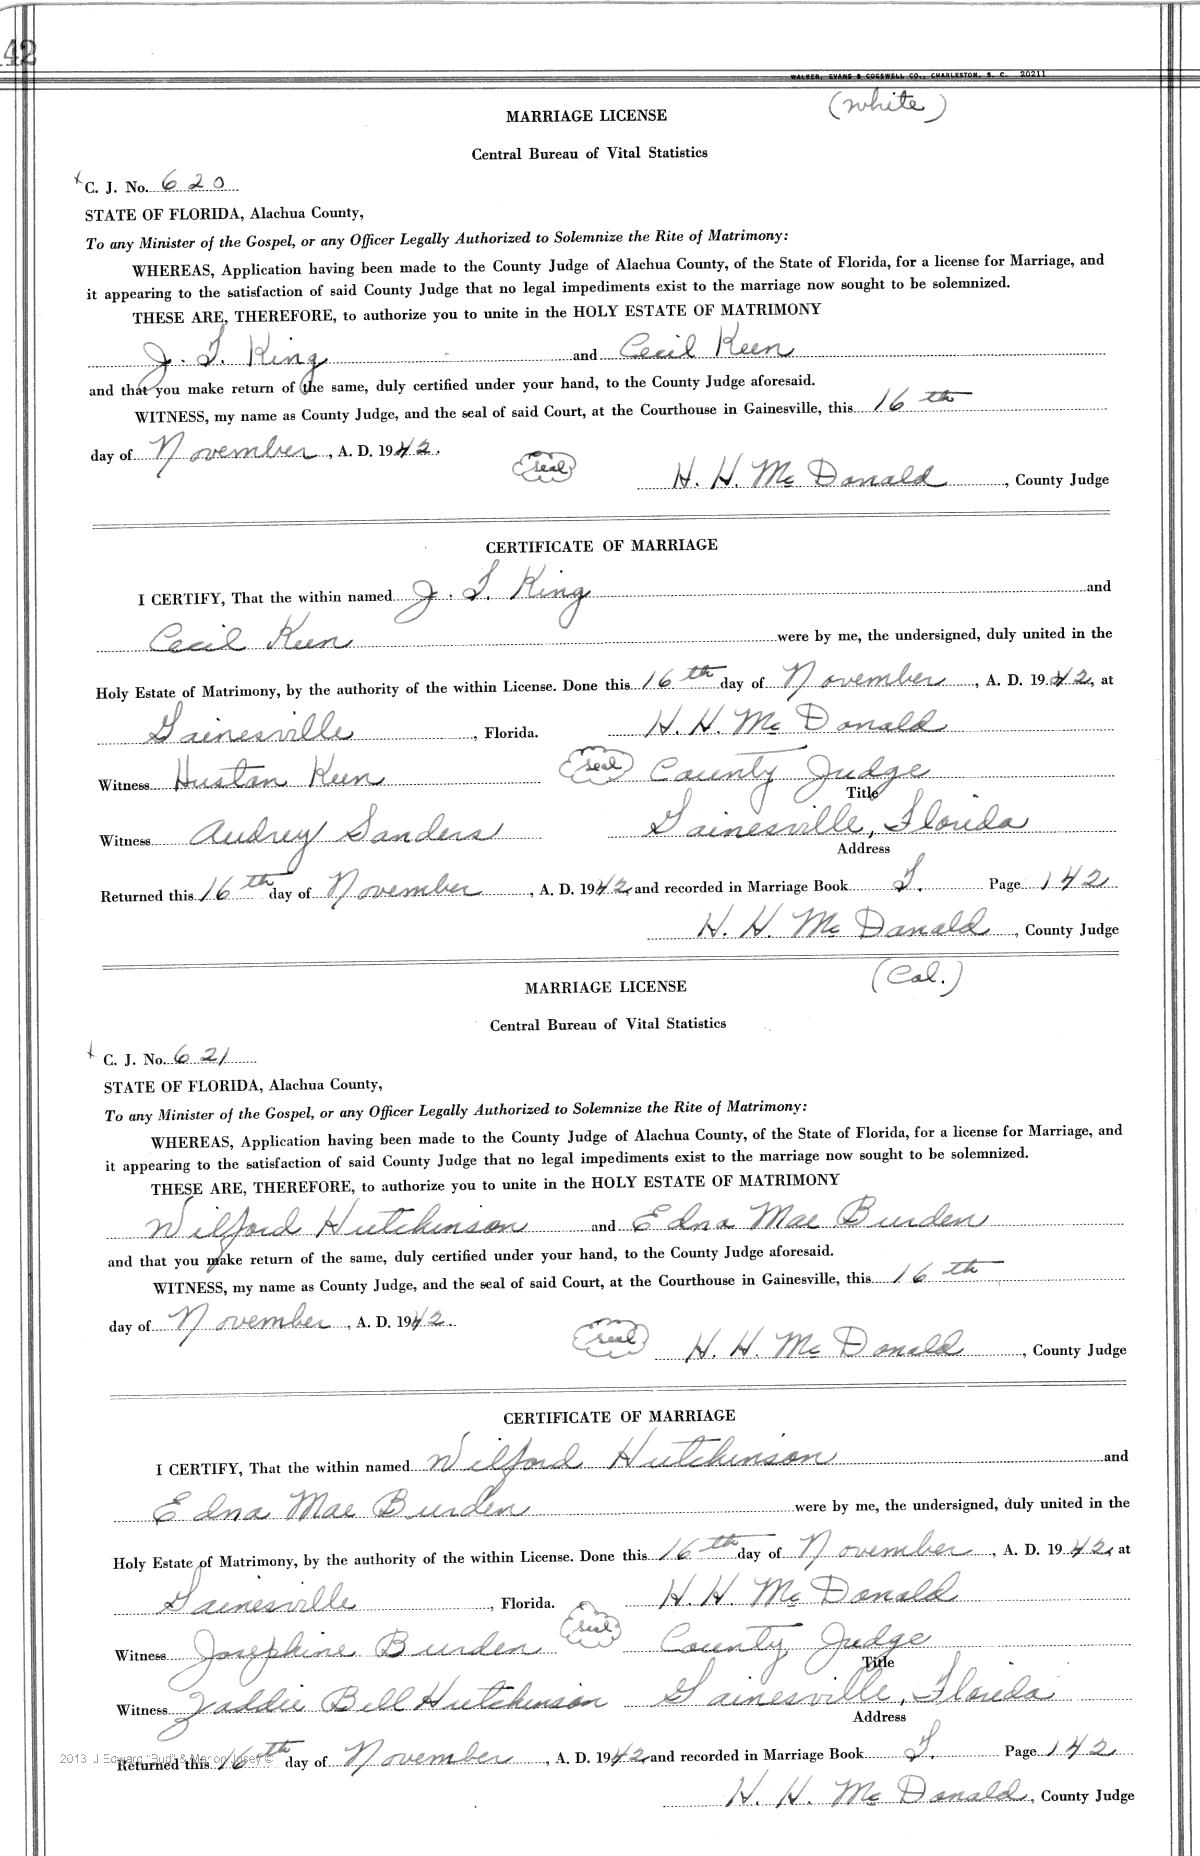 42
WALKER, EVANS & COGSWELL CO., CHARLESTON, S. C. 20211
(White)
MARRIAGE LICENSE
Central Bureau of Vital Statistics
x C. J. No. 620
STATE OF FLORIDA, Alachua County,
To any Minister of the Gospel, or any Officer Legally Authorized to Solemnize the Rite of Matrimony:
WHEREAS, Application having been made to the County Judge of Alachua County, of the State of Florida, for a license for Marriage, and
it appearing to the satisfaction of said County Judge that no legal impediments exist to the marriage now sought to be solemnized.
THESE ARE, THEREFORE, to authorize you to unite in the HOLY ESTATE OF MATRIMONY
J. T. King and Cecil Keen
and that you make return of the same, duly certified under your hand, to the County Judge aforesaid.
WITNESS, my name as County Judge, and the seal of said Court, at the Courthouse in Gainesville, this 16th
day of November, A. D. 1942.
seal H. H. McDonald, County Judge
CERTIFICATE OF MARRIAGE
I CERTIFY, That the within named J. T. King and
Cecil Keen were by me, the undersigned, duly united in the
Holy Estate of Matrimony, by the authority of the within License. Done this 16th day of November, A. D. 1942, at
Gainesville, Florida. H. H. McDonald
Witness Hustan Keen seal County Judge
Title
Witness Audrey Sanders Gainesville, Florida
Address
Returned this 16th day of November, A. D. 1942 and recorded in Marriage Book T. Page 142
H. H. McDonald, County Judge
(Col.)
MARRIAGE LICENSE
Central Bureau of Vital Statistics
x C. J. No. 621
STATE OF FLORIDA, Alachua County,
To any Minister of the Gospel, or any Officer Legally Authorized to Solemnize the Rite of Matrimony:
WHEREAS, Application having been made to the County Judge of Alachua County, of the State of Florida, for a license for Marriage, and
it appearing to the satisfaction of said County Judge that no legal impediments exist to the marriage now sought to be solemnized.
THESE ARE, THEREFORE, to authorize you to unite in the HOLY ESTATE OF MATRIMONY
Wilford Hutchinson and Edna Mae Burden
and that you make return of the same, duly certified under your hand, to the County Judge aforesaid.
WITNESS, my name as County Judge, and the seal of said Court, at the Courthouse in Gainesville, this 16th
day of November, A. D. 1942.
seal H. H. McDonald, County Judge
CERTIFICATE OF MARRIAGE
I CERTIFY, That the within named Wilford Hutchinson and
Edna Mae Burden were by me, the undersigned, duly united in the
Holy Estate of Matrimony, by the authority of the within License. Done this 16th day of November, A. D. 1942, at
Gainesville, Florida. H. H. McDonald
Witness Josephine Burden seal County Judge
Title
Witness Zaddie Bell Hutchinson Gainesville, Florida
Address
2013 J Edward "Bud" & Marion Josey ©
Returned this 16th day of November, A. D. 1942 and recorded in Marriage Book T. Page 142
H. H. McDonald, County Judge